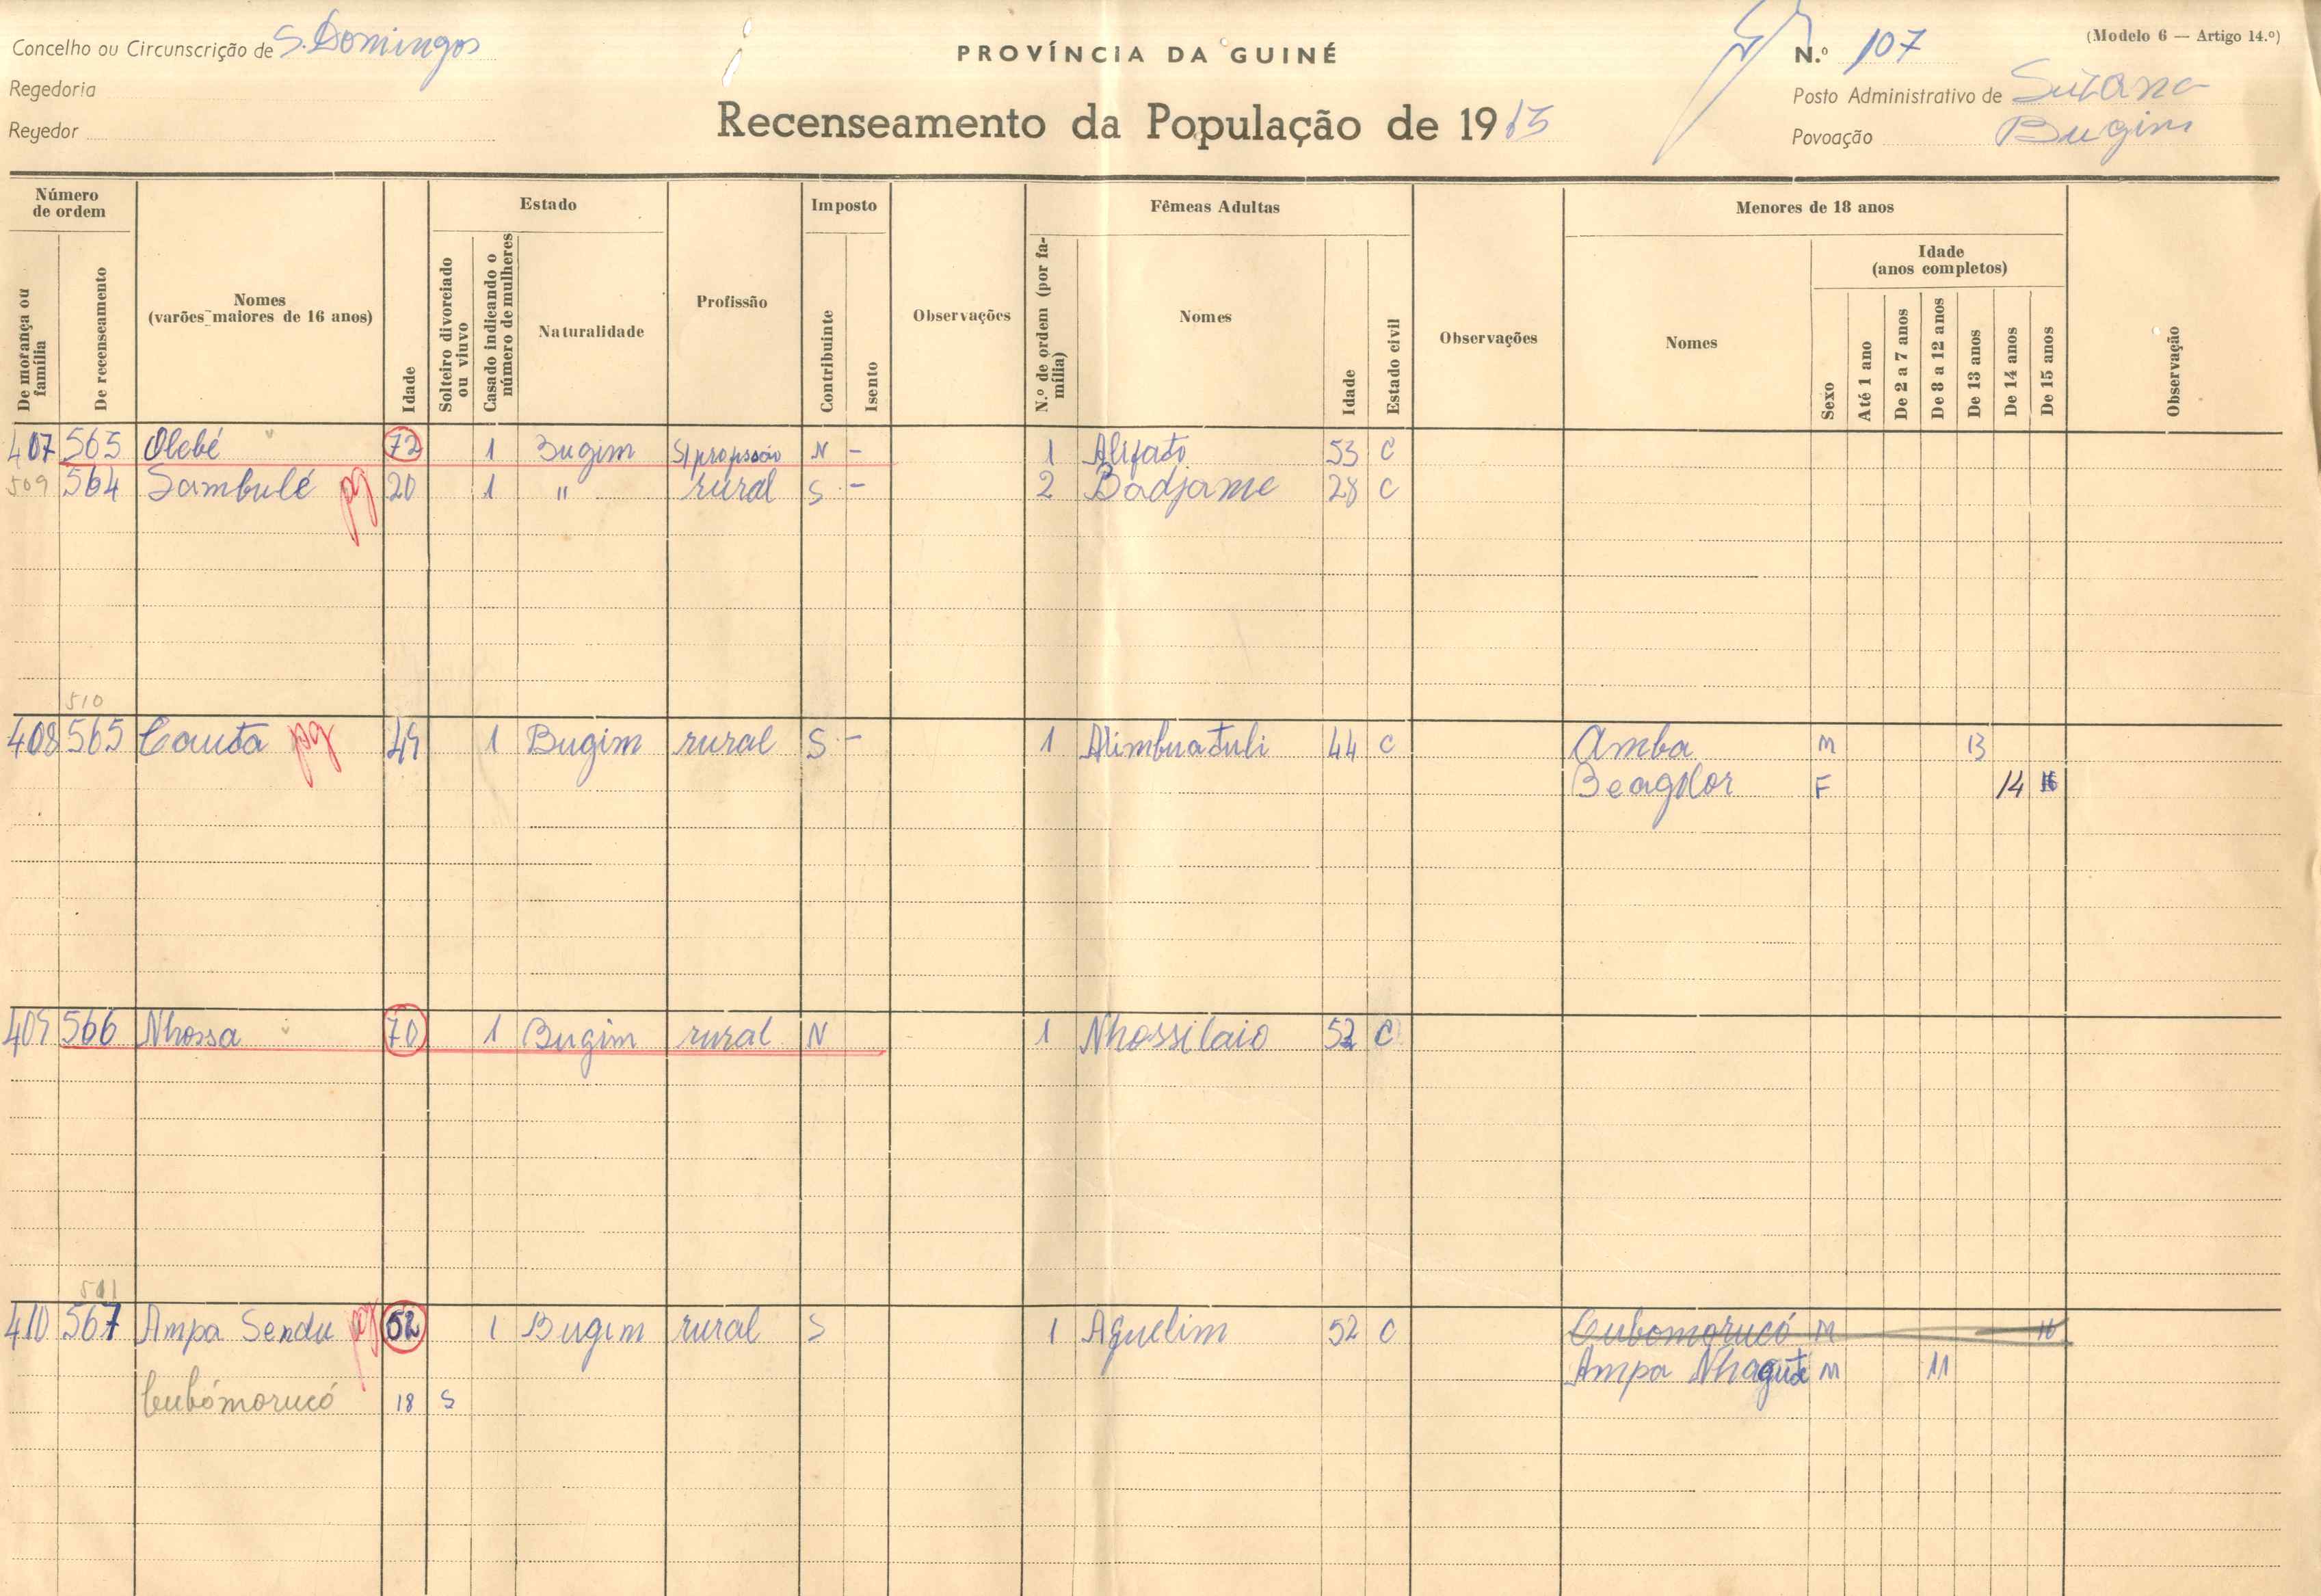 Concelho ou Circunscrição de S. Domingos
Regedoria
Regedor
PROVÍNCIA DA GUINÉ
Recenseamento da População de 19
(Modelo 6 — Artigo 14.º)
N.º 107
Posto Administrativo de Suzana
Povoação Bugim
Número de ordem
De morança ou família
De recenseamento
Nomes (varões maiores de 16 anos)
Idade
Estado
Solteiro divorciado ou viuvo
Casado indicando o número de mulheres
Naturalidade
Profissão
Imposto
Contribuinte
Isento
Observações
Fêmeas Adultas
N.º de ordem (por família)
Nomes
Idade
Estado civil
Observações
Menores de 18 anos
Nomes
Sexo
Idade (anos completos)
Até 1 ano
De 2 a 7 anos
De 8 a 12 anos
De 13 anos
De 14 anos
De 15 anos
Observação
407 563 Olebé 72 1 Bugim S/profissão N - 1 Alifato 53 C
509 564 Sambulé pg 20 1 " rural S - 2 Badjame 28 C
510
408 565 Cauta pg 49 1 Bugim rural S - 1 Alimbuatuli 44 C Amba M 13
Beagolor F 14
409 566 Nhossa 70 1 Bugim rural N 1 Nhossilaio 52 C
511
410 567 Ampa Sendu pg 52 1 Bugim rural S 1 Aguelim 52 C Cubomorucó M
Ampa Nhagute M 11
Cubómorucó 18 S